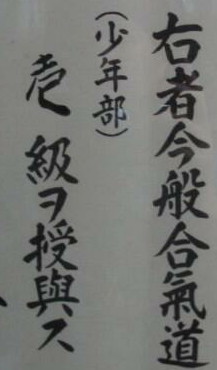 右者今般合氣道
(少年部)
壱級ヲ授與ス